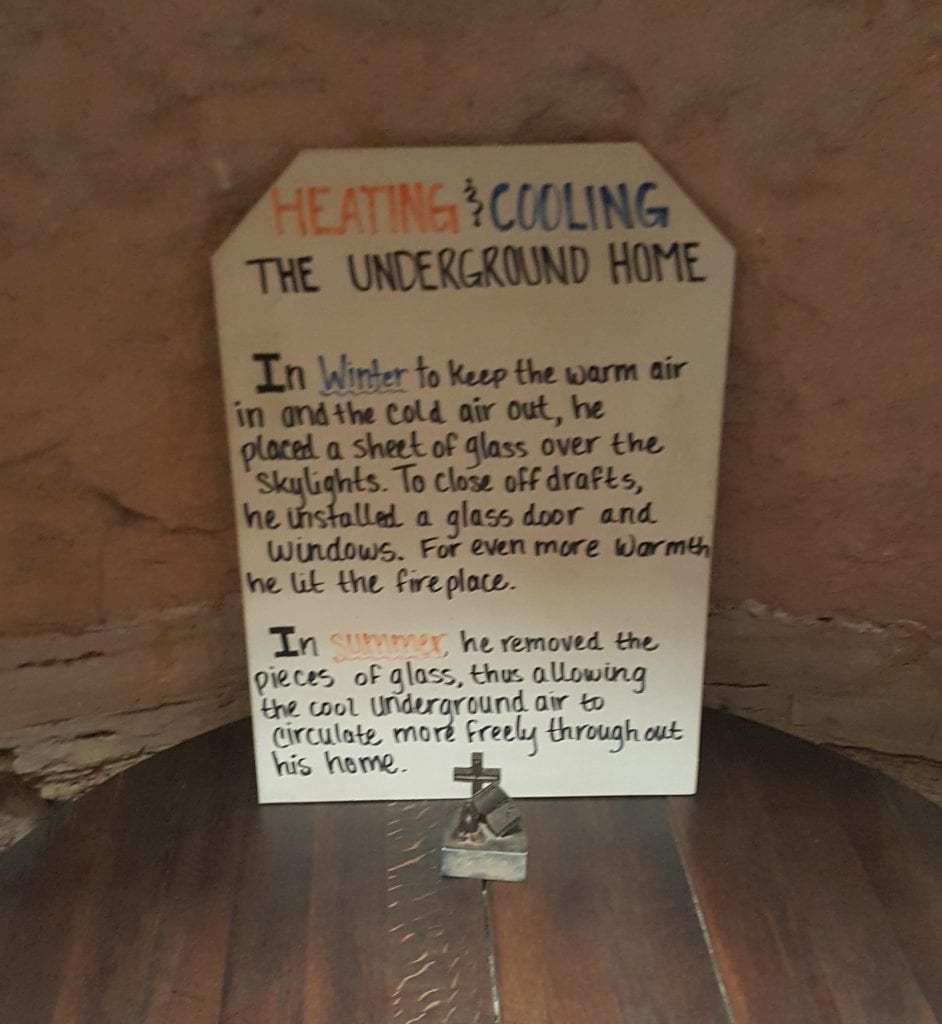 HEATING & COOLING
THE UNDERGROUND HOME
In Winter to keep the warm air
in and the cold air out, he
placed a sheet of glass over the
skylights. To close off drafts,
he installed a glass door and
windows. For even more warmth
he lit the fireplace.
In summer, he removed the
pieces of glass, thus allowing
the cool underground air to
circulate more freely throughout
his home.